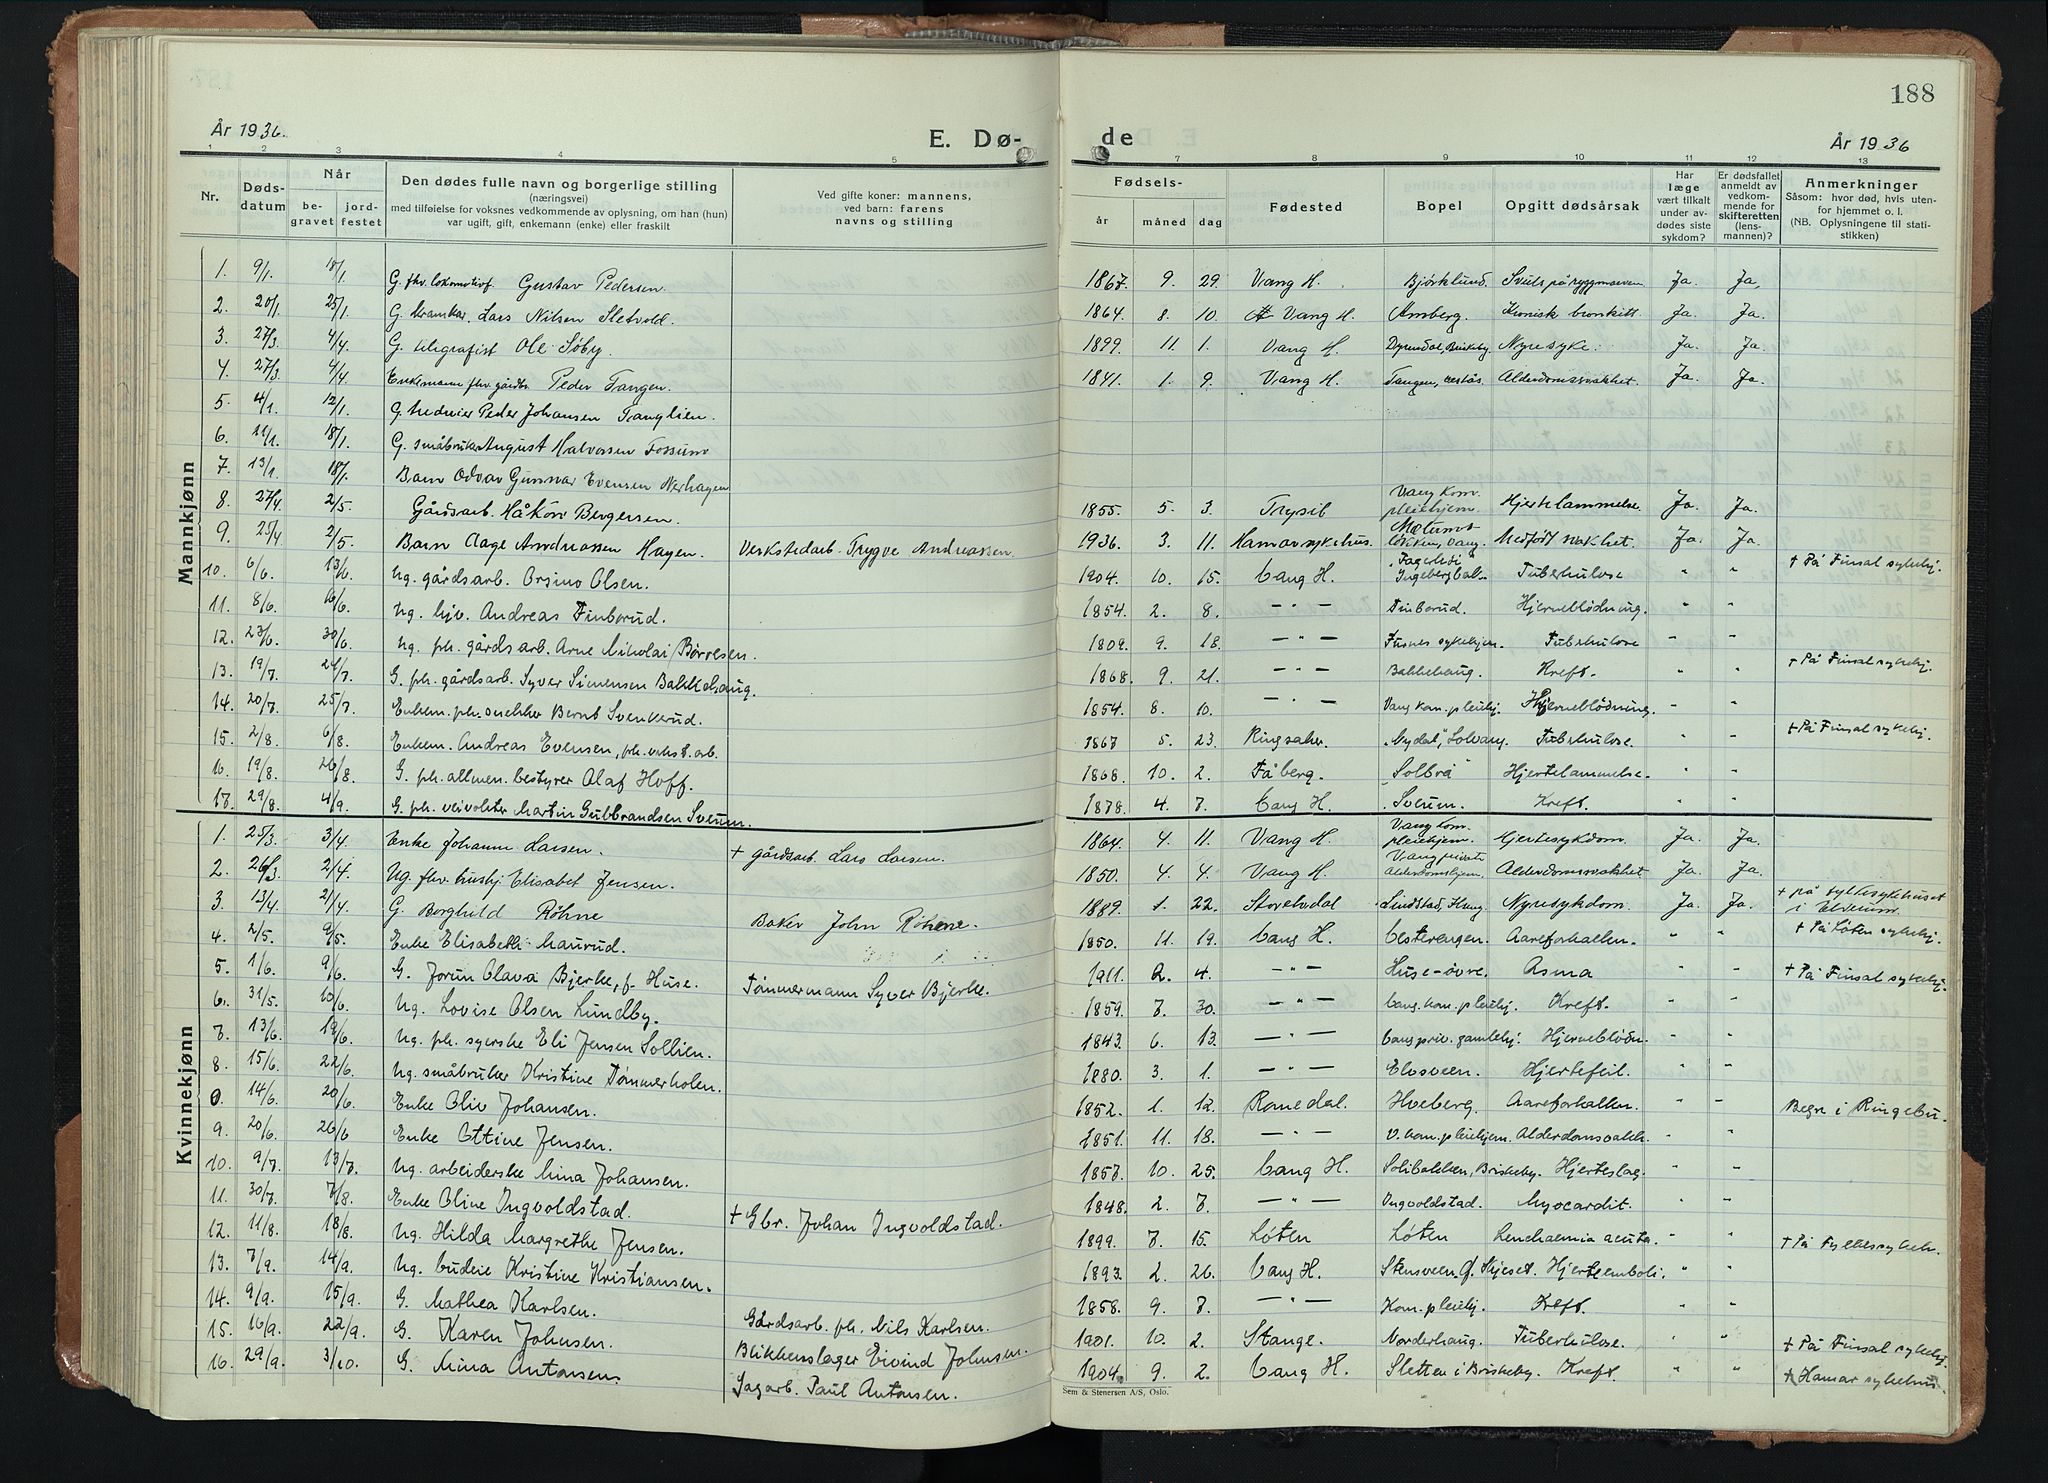 188
År 1936.
E. Dø-
de
År 1936
1 2 3 4 5 7 8 9 10 11 12 13
Nr. Døds-datum Når be-gravet jord-festet Den dødes fulle navn og borgerlige stilling (næringsvei) med tilføielse for voksnes vedkommende av oplysning, om han (hun) var ugift, gift, enkemann (enke) eller fraskilt Ved gifte koner: mannens, ved barn: farens navns og stilling Fødsels- år måned dag Fødested Bopel Opgitt dødsårsak Har læge vært tilkalt under av-dødes siste sykdom? Er dødsfallet anmeldt av vedkom-mende for skifteretten (lens-mannen)? Anmerkninger Såsom: hvor død, hvis uten-for hjemmet o. l. (NB. Oplysningene til stati-stikken)
Mannkjønn
1. 9/1. 18/1 G. fhv. lokomotivf. Gustav Pedersen. 1867. 9. 29. Vang H. Bjørklund. Ja. Ja.
2. 20/1 25/1. G. Lars Nilsen Sletvold. 1864. 8. 10. Vang H. Arnberg. Kronisk bronkitt. Ja. Ja.
3. 27/3. 4/4 G. telegrafist Ole Søby. 1899. 11. 1. Vang H. Briskeby. Nyresyke. Ja. Ja.
4. 27/3. 4/4. Enkemann fhv. gårdbr. Peder Tangen. 1841. 1. 9. Vang H. Tangen, Alderdomssvakhet. Ja. Ja.
5. 4/1. 12/1. G. Peder Johansen Tanglien.
6. 11/1. 18/1. G. småbruker August Halvorsen Fossum
7. 13/1 18/1. Barn Odvar Gunnar Evensen Nerhagen
8. 27/4. 2/5. Gårdsarb. Håkon Bergersen. 1855. 5. 3. Trysil Vang kom. pleiehjem. Hjertelammelse. Ja. Ja.
9. 25/4 2/5. Barn Aage Andreassen Hagen. Verkstedarb. Trygve Andreassen. 1936. 3. 11. Hamar sykehus. Vang. Medfødt svakhet. Ja. Ja.
10. 6/6. 13/6 Ug. gårdsarb. Orsino Olsen. 1904. 10. 15. Vang H. Fagerhøi Ingebergbak. Tuberkulose " " + På Finsal sykehj.
11. 8/6. 16/6. Ug. Andreas Finborud. 1854. 2. 8. — " — Finborud. Hjerneblødning. " "
12. 23/6. 30/6 Ug. ph. gårdsarb. Arne Nikolai Børresen. 1809. 9. 18. — " — Furnes sykehjem. Tuberkulose " "
13. 19/7. 24/7. G. ph. gårdsarb. Syver Simensen Bakkehaug. 1868. 9. 21. — " — Bakkehaug. Kreft. " " + På Finsal sykehj.
14. 20/7. 25/7. Enkem. ph. snekker Bernt Svenkerud. 1854. 8. 10. — " — Vang kom. pleiehj. Hjerneblødning. " "
15. 2/8. 6/8. Enkem. Andreas Evensen, ph. verkst. arb. 1867 5. 23. Ringsaker. "Nydal", Solvang. Tuberkulose. " " + På Finsal sykehj.
16. 19/8. 26/8. G. ph. allmen. bestyrer Olaf Hoff. 1868. 10. 2. Fåberg. "Solbrå" Hjertelammelse. " "
17. 29/8. 4/9. G. ph. veivokter Martin Gulbrandsen Sverum. 1878. 4. 7. Vang H. Sverum. Kreft. " "
Kvinnekjønn
1. 25/3. 3/4. Enke Johanne Larsen. + gårdsarb. Lars Larsen. 1864. 4. 11. Vang H. Vang kom. pleiehjem. Hjertesykdom. Ja. Ja.
2. 26/3 2/4. Ug. fhv. hushj. Elisabet Jensen. 1850. 4. 4. Vang H. Vang private Alderdomshjem. Alderdomssvakhet Ja. Ja.
3. 13/4. 21/4. G. Borghild Røhne Baker John Røhne. 1889. 1. 22. Storelvdal Lindstad, Nyresykdom. Ja. Ja. + på fylkesykehuset i Elverum.
4. 2/5. 9/5. Enke Elisabeth Maurud. 1850. 11. 19. Vang H. Vesterengen. Aareforkalken. " " + På Løten sykehj.
5. 1/6. 9/6. G. Jorun Olava Bjerke, f. Huse. Tømmermann Syver Bjerke. 1911. 2. 4. — " — Huse-øvre. Asma " " + På Finsal sykehj.
6. 31/5. 10/6. Ug. Lovise Olsen Lundby. 1859. 7. 30. — " — Vang kom. pleiehj. Kreft. " "
7. 13/6. 19/6. Ug. ph. syerske Eli Jensen Sollien. 1843. 6. 13. — " — Vang priv. gamlehj. Hjerneblødn. " "
8. 15/6. 22/6. Ug. småbruker Kristine Tømmerholen. 1880. 3. 1. — " — Elvsveen. Hjertefeil. " "
0. 14/6. 20/6. Enke Oliv Johansen. 1852. 1. 12. Romedal. Hoeberg. Aareforkalken. " " Begr. i Ringebu.
9. 20/6. 26/6 Enke Ottine Jensen. 1851. 11. 18. — " — V. kom. pleiehjem. Alderdomsvakh. " "
10. 9/7. 13/7. Ug. arbeiderske Nina Johansen. 1857. 10. 25. Vang H. Solibakken, Briskeby. Hjerteslag. " "
11. 30/7. 7/8. Enke Oline Ingvoldstad. + Gbr. Johan Ingvoldstad. 1848. 2. 7. — " — Ingvoldstad. Myocardit. " "
12. 11/8. 18/8. Ug. Hilda Margrethe Jensen. 1899. 7. 15. Løten Løten Lenchaemia acuta. " " + På Fylkessykeh.
13. 7/9. 14/9. Ug. budeie Kristine Kristiansen. 1893. 2. 26. Vang H. Stensveen Hjerteemboli. " "
14. 9/9. 15/9. G. Mathea Karlsen. Gårdsarb. ph. Nils Karlsen. 1858. 9. 7. — " — Kom. pleiehj. Kreft. " "
15. 16/9. 22/9. G. Karen Johnsen. Blikkenslager Eivind Johnsen. 1901. 10. 2. Stange. Norderhaug. Tuberkulose. " " + På Finsal sykehj.
16. 29/9. 3/10. G. Nina Antonsen. Sagarb. Paul Antonsen. 1904. 9. 2. Vang H. Sletten i Briskeby. Kreft. " " + Hamar sykehus.
Sem & Stenersen A/S, Oslo.